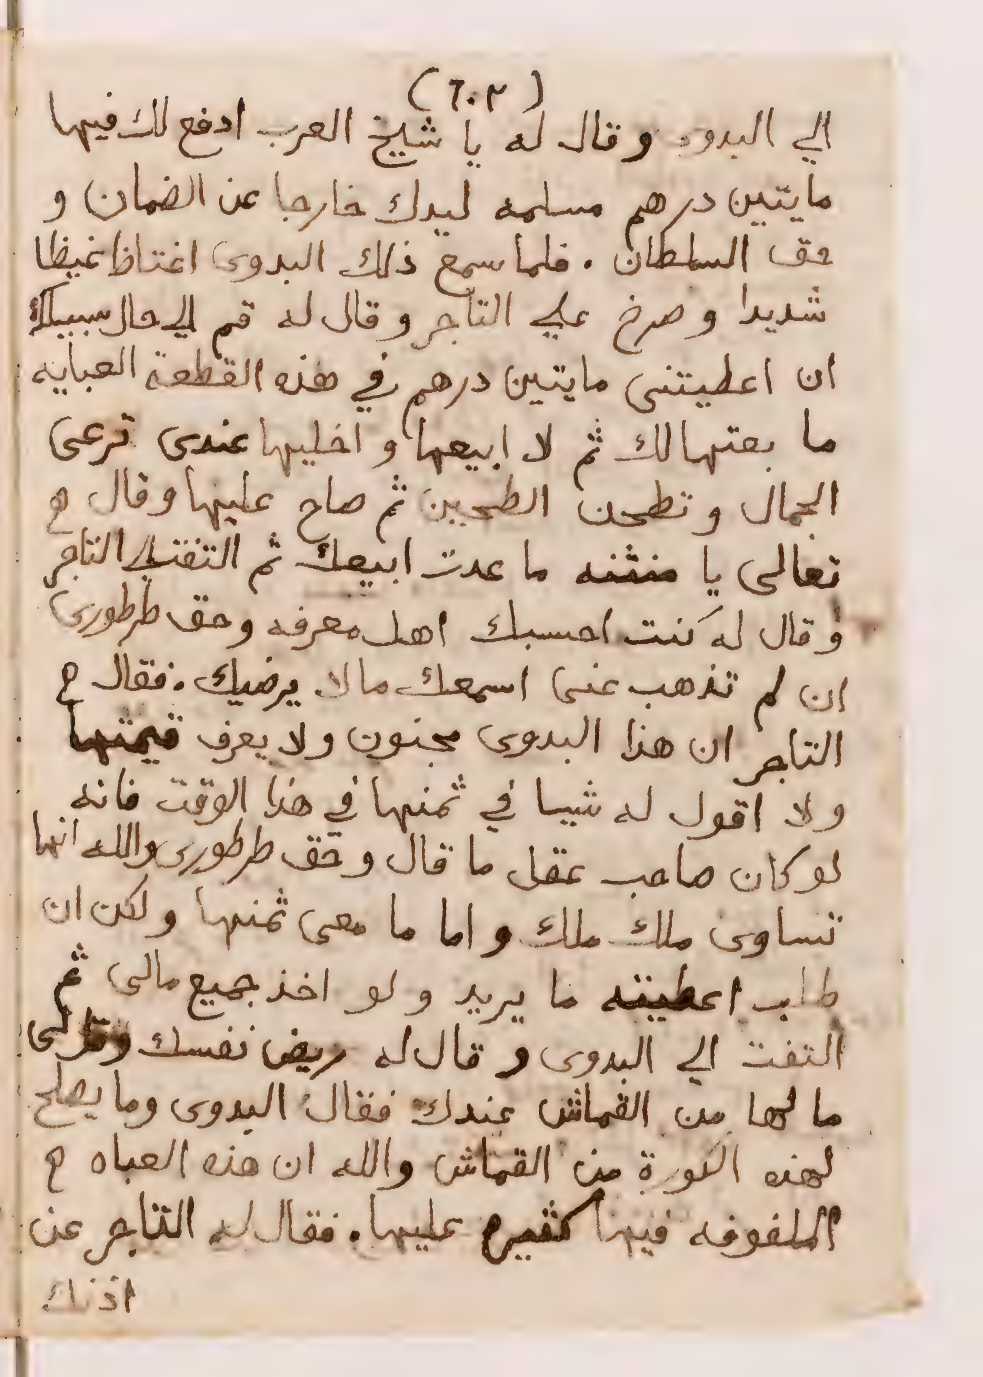 (٦٠٢)
الي البدوى وقال له يا شيخ العرب ادفع لك فيها
مايتين درهم مسلمه ليدك خارجا عن الضمان و
حق السلطان . فلما سمع ذلك البدوى اغتاظ غيظا
شديدا وصرخ علي التاجر وقال له قم الي حال سبيلك
ان اعطيتنى مايتين درهم في هذه القطعة العبايه
ما بعتها لك ثم لا ابيعها واخليها عندى ترعى
الجمال وتطحن الطحين ثم صاح عليها وقال ح
تعالى يا منتنه ما عدت ابيعك ثم التفت الي التاجر
وقال له كنت احسبك اهل معرفه وحق طرطورى
ان لم تذهب عنى اسمعك ما لا يرضيك . فقال ح
التاجر ان هذا البدوى مجنون ولا يعرف قيمتها
ولا اقول له شيا في ثمنها في هذا الوقت فانه
لو كان صاحب عقل ما قال وحق طرطورى والله انها
تساوى ملك ملك واما ما معى ثمنها ولكن ان
طلب اعطيته ما يريد ولو اخذ جميع مالى ثم
التفت الي البدوى وقال له ريض نفسك وقل لى
ما لها من القماش عندك فقال البدوى وما يصلح
لهذه الكورة من القماش والله ان هذه العباه ح
الملفوفه فيها كثيره عليها . فقال له التاجر عن
اذنك